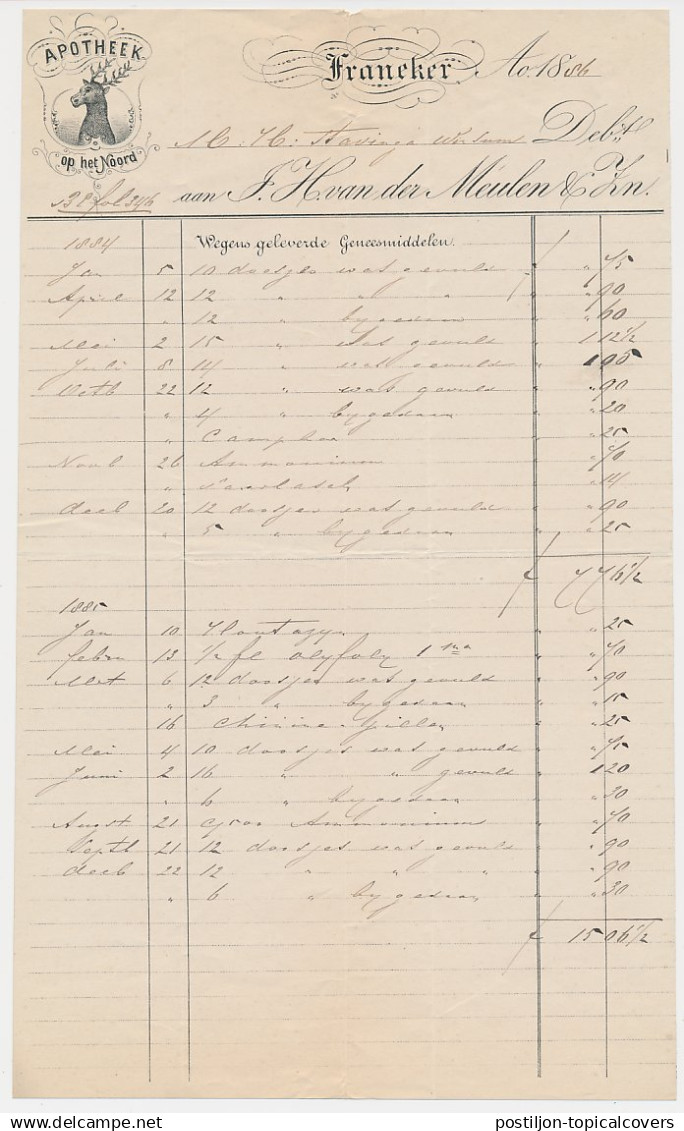 APOTHEEK
op het Noord
Franeker Ao. 1886
M: H: Stavinga Debt.
aan J. H. van der Meulen & Zn.
1884 Wegens geleverde Geneesmiddelen.
Jan 5 10 doosjes was gevuld " " 75
April 12 12 " " " " " 90
" 12 " bygedaan " " 60
Mei 2 15 " was gevuld " 1 12 1/2
Juli 8 14 " was gevuld " 1 05
Octb 22 12 " was gevuld " " 90
" 4 " bygedaan " " 20
" Camphor " " 25
Novb 26 Ammonium " " 70
" " " 14
decb 20 12 doosjes was gevuld " " 90
" 5 " bygedaan " " 25
f 7 76 1/2
1885
Jan 10 " " 25
febru 13 1/2 fl 1 " " 70
Mrt 6 12 doosjes was gevuld " " 90
" 3 " bygedaan " " 15
16 Chinine Pillen " " 25
Mei 4 10 doosjes was gevuld " " 75
Juni 2 16 " " gevuld " 1 20
" 6 " bygedaan " " 30
Augst 21 Ammonium " " 70
Septb 21 12 doosjes was gevuld " " 90
decb 22 12 " " " " " 90
" 6 " bygedaan " " 30
f 15 06 1/2
postiljon-topicalcovers